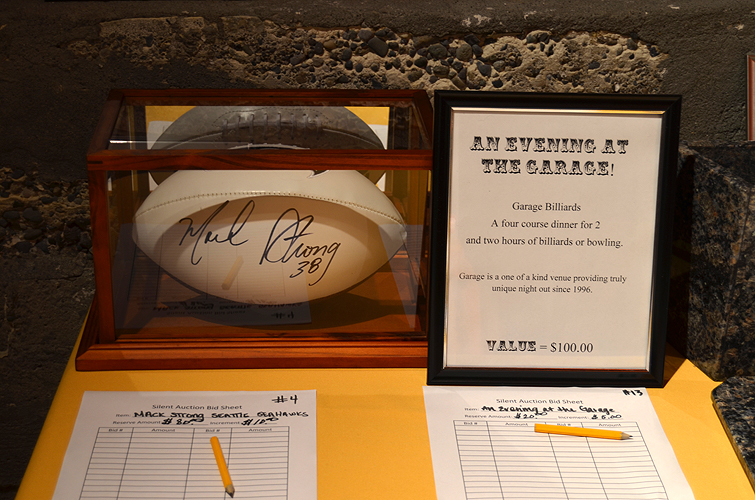 Mack Strong
38
AN EVENING AT
THE GARAGE!
Garage Billiards
A four course dinner for 2
and two hours of billiards or bowling.
Garage is a one of a kind venue providing truly
unique night out since 1996.
VALUE = $100.00
#4
Silent Auction Bid Sheet
Item: MACK STRONG SEATTLE SEAHAWKS
Reserve Amount: $80.00 Increment: $10.00
Bid # Amount Bid # Amount
#13
Silent Auction Bid Sheet
Item: An Evening at the Garage
Reserve Amount: $20.00 Increment: $5.00
Bid # Amount Bid # Amount